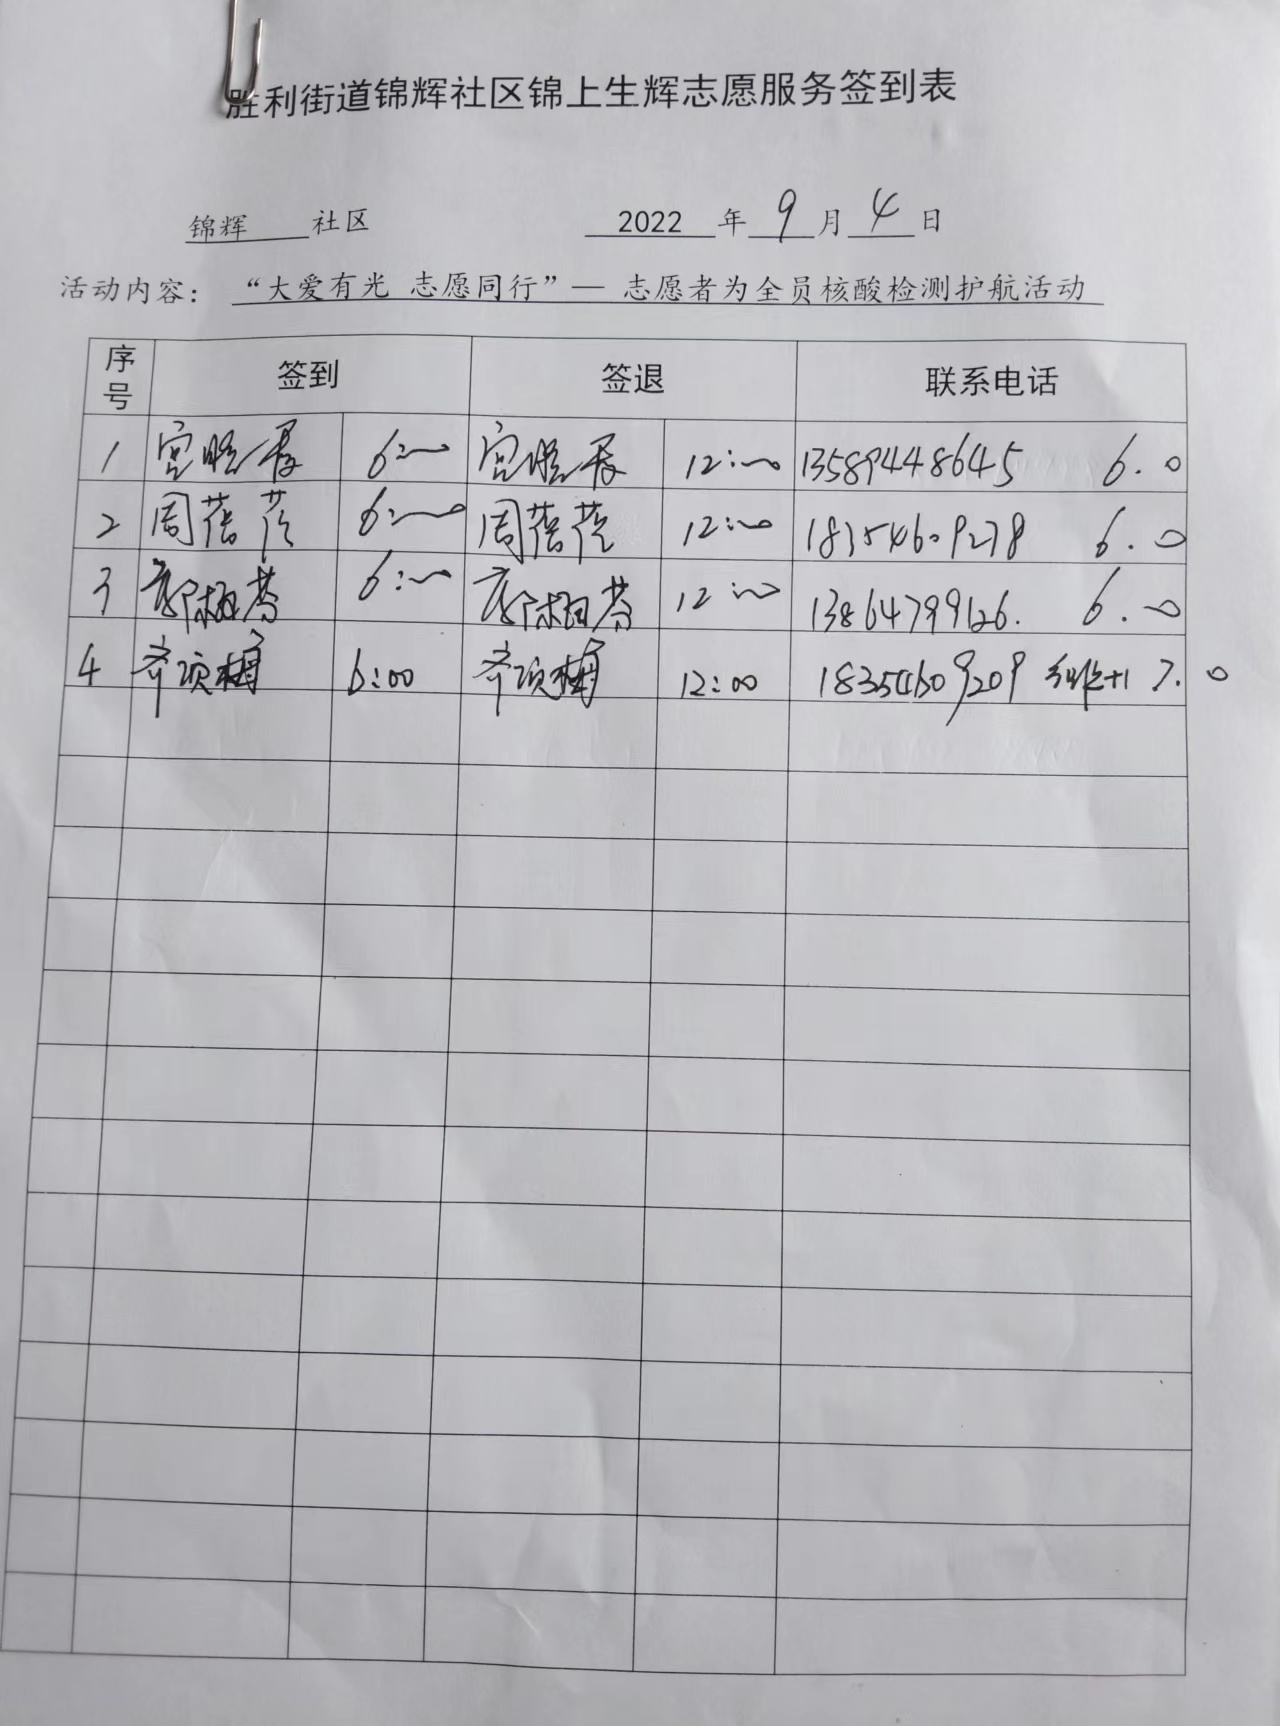 胜利街道锦辉社区锦上生辉志愿服务签到表
锦辉 社区 2022 年 9 月 4 日
活动内容： “大爱有光 志愿同行”— 志愿者为全员核酸检测护航活动
序号 签到 签退 联系电话
1 宫晓晨 6:00 宫晓晨 12:00 13589448645 6.0
2 周蓓蓓 6:00 周蓓蓓 12:00 18354609278 6.0
3 6:00 12:00 13864799126. 6.0
4 齐项梅 6:00 齐项梅 12:00 18354609209 +1 7.0